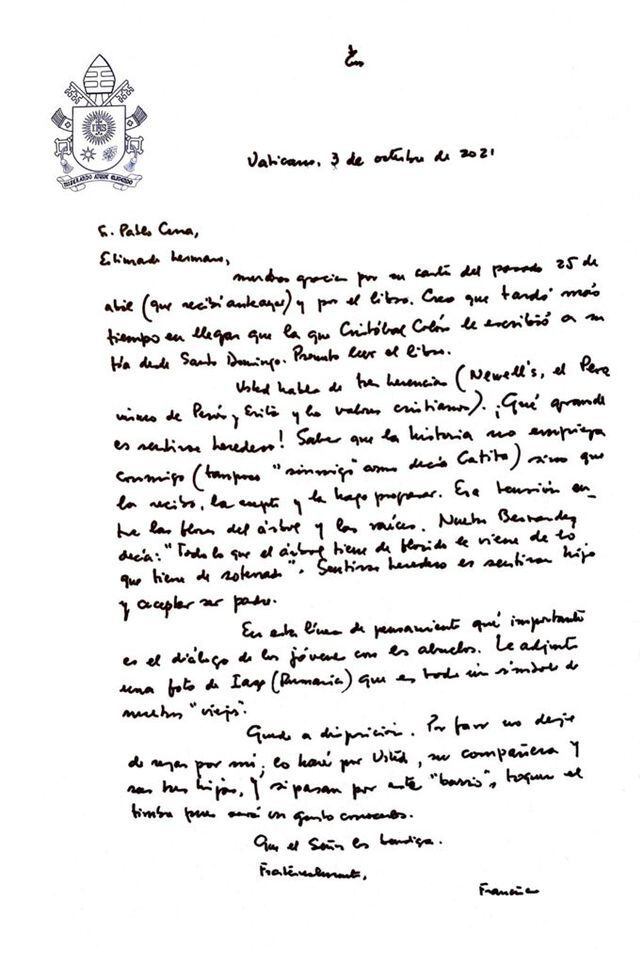 MISERANDO ATQUE ELIGENDO
Vaticano, 3 de octubre de 2021
Sr. Pablo Cena,
Estimado hermano,
muchas gracias por su carta del pasado 25 de
abril (que recibí anteayer) y por el libro. Creo que tardó más
tiempo en llegar que la que Cristóbal Colón le escribió a su
tía desde Santo Domingo. Prometo leer el libro.
Usted habla de tres herencias (Newell's, el Pero
nismo de Perón y Evita y los valores cristianos). ¡Qué grande
es sentirse heredero! Saber que la historia no empieza
conmigo (tampoco "sinmigo" como decía Catita) sino que
la recibo, la acepto y la hago progresar. Esa tensión en-
tre las flores del árbol y las raíces. Nuestro Bernardez
decía: "Todo lo que el árbol tiene de florido le viene de lo
que tiene de soterrado". Sentirse heredero es sentirse hijo
y aceptar ser padre.
En esta línea de pensamiento qué importante
es el diálogo de los jóvenes con los abuelos. Le adjunto
una foto de (Rumania) que es todo un símbolo de
nuestros "viejos".
Quedo a disposición. Por favor no deje
de rezar por mí; lo haré por Usted, su compañera y
sus tres hijos, Y si pasan por este "barrio", toquen el
timbre pues será un gusto conocerlos.
Que el Señor los bendiga.
Fraternalmente,
Francisco